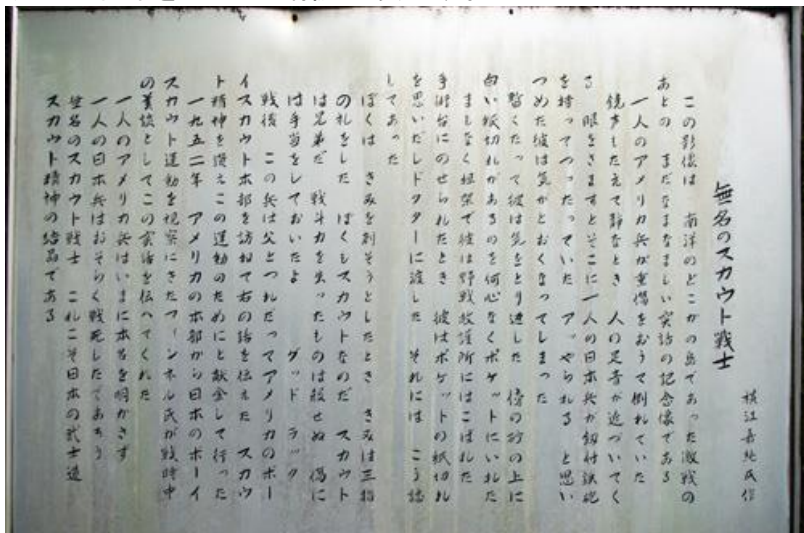 無名のスカウト戦士
横江嘉純氏作
この影像は 南洋のどこかの島であった激戦の
あとの まだなまなましい実話の記念像である
一人のアメリカ兵が重傷をおうて倒れていた
銃声もたえて静なとき 人の足音が近づいてく
る 眼をさますとそこに一人の日本兵が剣付鉄砲
を持ってつったっていた アッやられる と思い
つめた彼は気がとおくなってしまった
暫くたって彼は気をとり返した 傍の砂の上に
白い紙切れがあるのを何心なくポケットにいれた
まもなく担架で彼は野戦救護所にはこばれた
手術台にのせられたとき 彼はポケットの紙切れ
を思いだしドクターに渡した それには こう誌
してあった
ぼくは きみを刺そうとしたとき きみは三指
の礼をした ぼくもスカウトなのだ スカウト
は兄弟だ 戦斗力を失ったものは殺せぬ 傷に
は手当をしておいたよ グッド ラック
戦後 この兵は父とつれだってアメリカのボー
イスカウト本部を訪ねて右の話を伝えた スカウ
ト精神を讃えこの運動のためにと献金して行った
一九五二年 アメリカの本部から日本のボーイ
スカウト運動を視察にきたフィンネル氏が戦時中
の美談としてこの実話を伝へてくれた
一人のアメリカ兵はいまに本名を明かさず
一人の日本兵はおそらく戦死したであろう
無名のスカウト戦士 これこそ日本の武士道
スカウト精神の結晶である